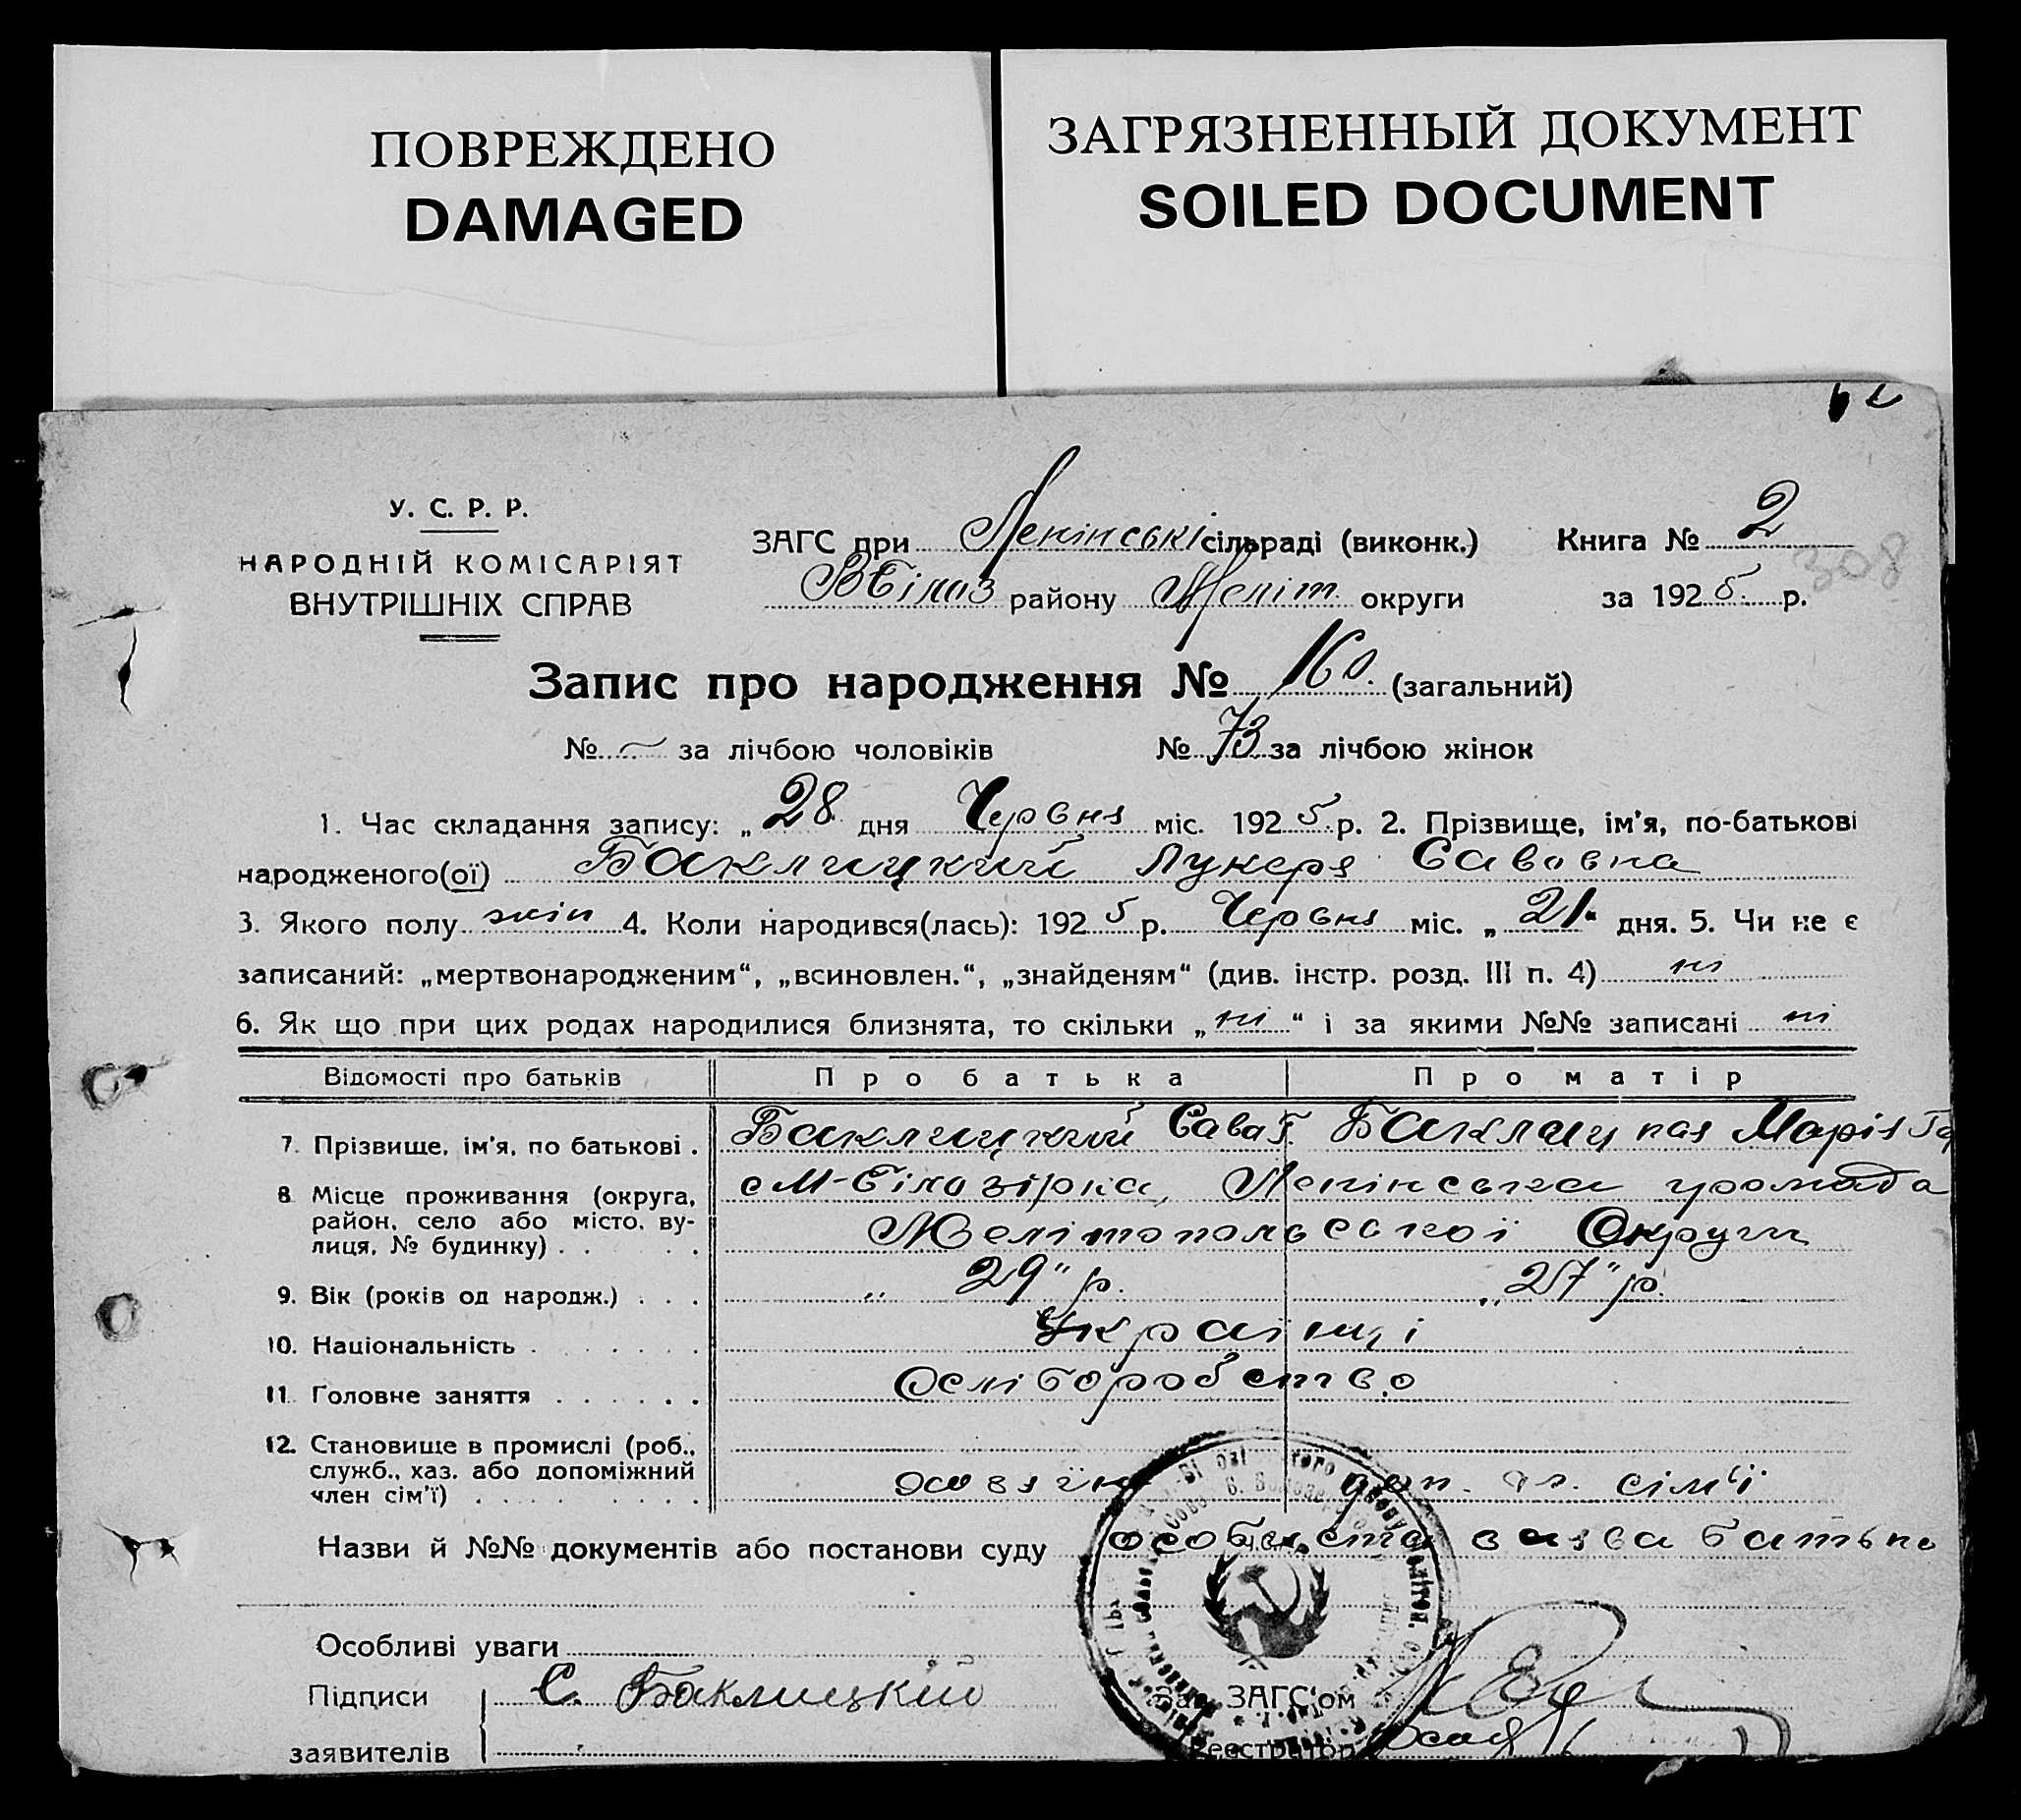 ПОВРЕЖДЕНО
DAMAGED
ЗАГРЯЗНЕННЫЙ ДОКУМЕНТ
SOILED DOCUMENT
308
У. С. Р. Р.
НАРОДНІЙ КОМІСАРІЯТ
ВНУТРІШНІХ СПРАВ
ЗАГС при Ленінські сільраді (виконк.)
ВБілоз району Меліт. округи
Книга № 2
за 1925 р.
Запис про народження № 160. (загальний)
№ — за лічбою чоловіків № 73 за лічбою жінок
1. Час складання запису: „28 дня Червня міс. 1925 р. 2. Прізвище, ім'я, по-батькові
народженого(ої) Баклицкий Лукеря Савовна
3. Якого полу жін 4. Коли народився(лась): 1925 р. Червня міс. „21" дня. 5. Чи не є
записаний: „мертвонародженим“, „всиновлен.“, „знайденям“ (див. інстр. розд. III п. 4) ні
6. Як що при цих родах народилися близнята, то скільки „ні“ і за якими №№ записані ні
Відомості про батьків Про батька Про матір
7. Прізвище, ім'я, по батькові . Баклицкий Сава Г. Баклицкая Марія
8 Місце проживання (округа, район, село або місто, вулиця, № будинку) . . . с М-Білозірка, Ленінська громада
Мелітопольської Округи
9. Вік (років од народж.) . . . „ 29" р. „ 27" р.
10. Національність . . . . . . . Українці
11. Головне заняття . . . . . . Осліборобство
12. Становище в промислі (роб., служб., хаз. або допоміжний член сім'ї) . . . . . . . . доп. чл. сім'ї
Назви й №№ документів або постанови суду особиста заява батька
Особливі уваги
Підписи С. Баклицкий
заявителів
Зав. ЗАГС'ом
Реєстратор